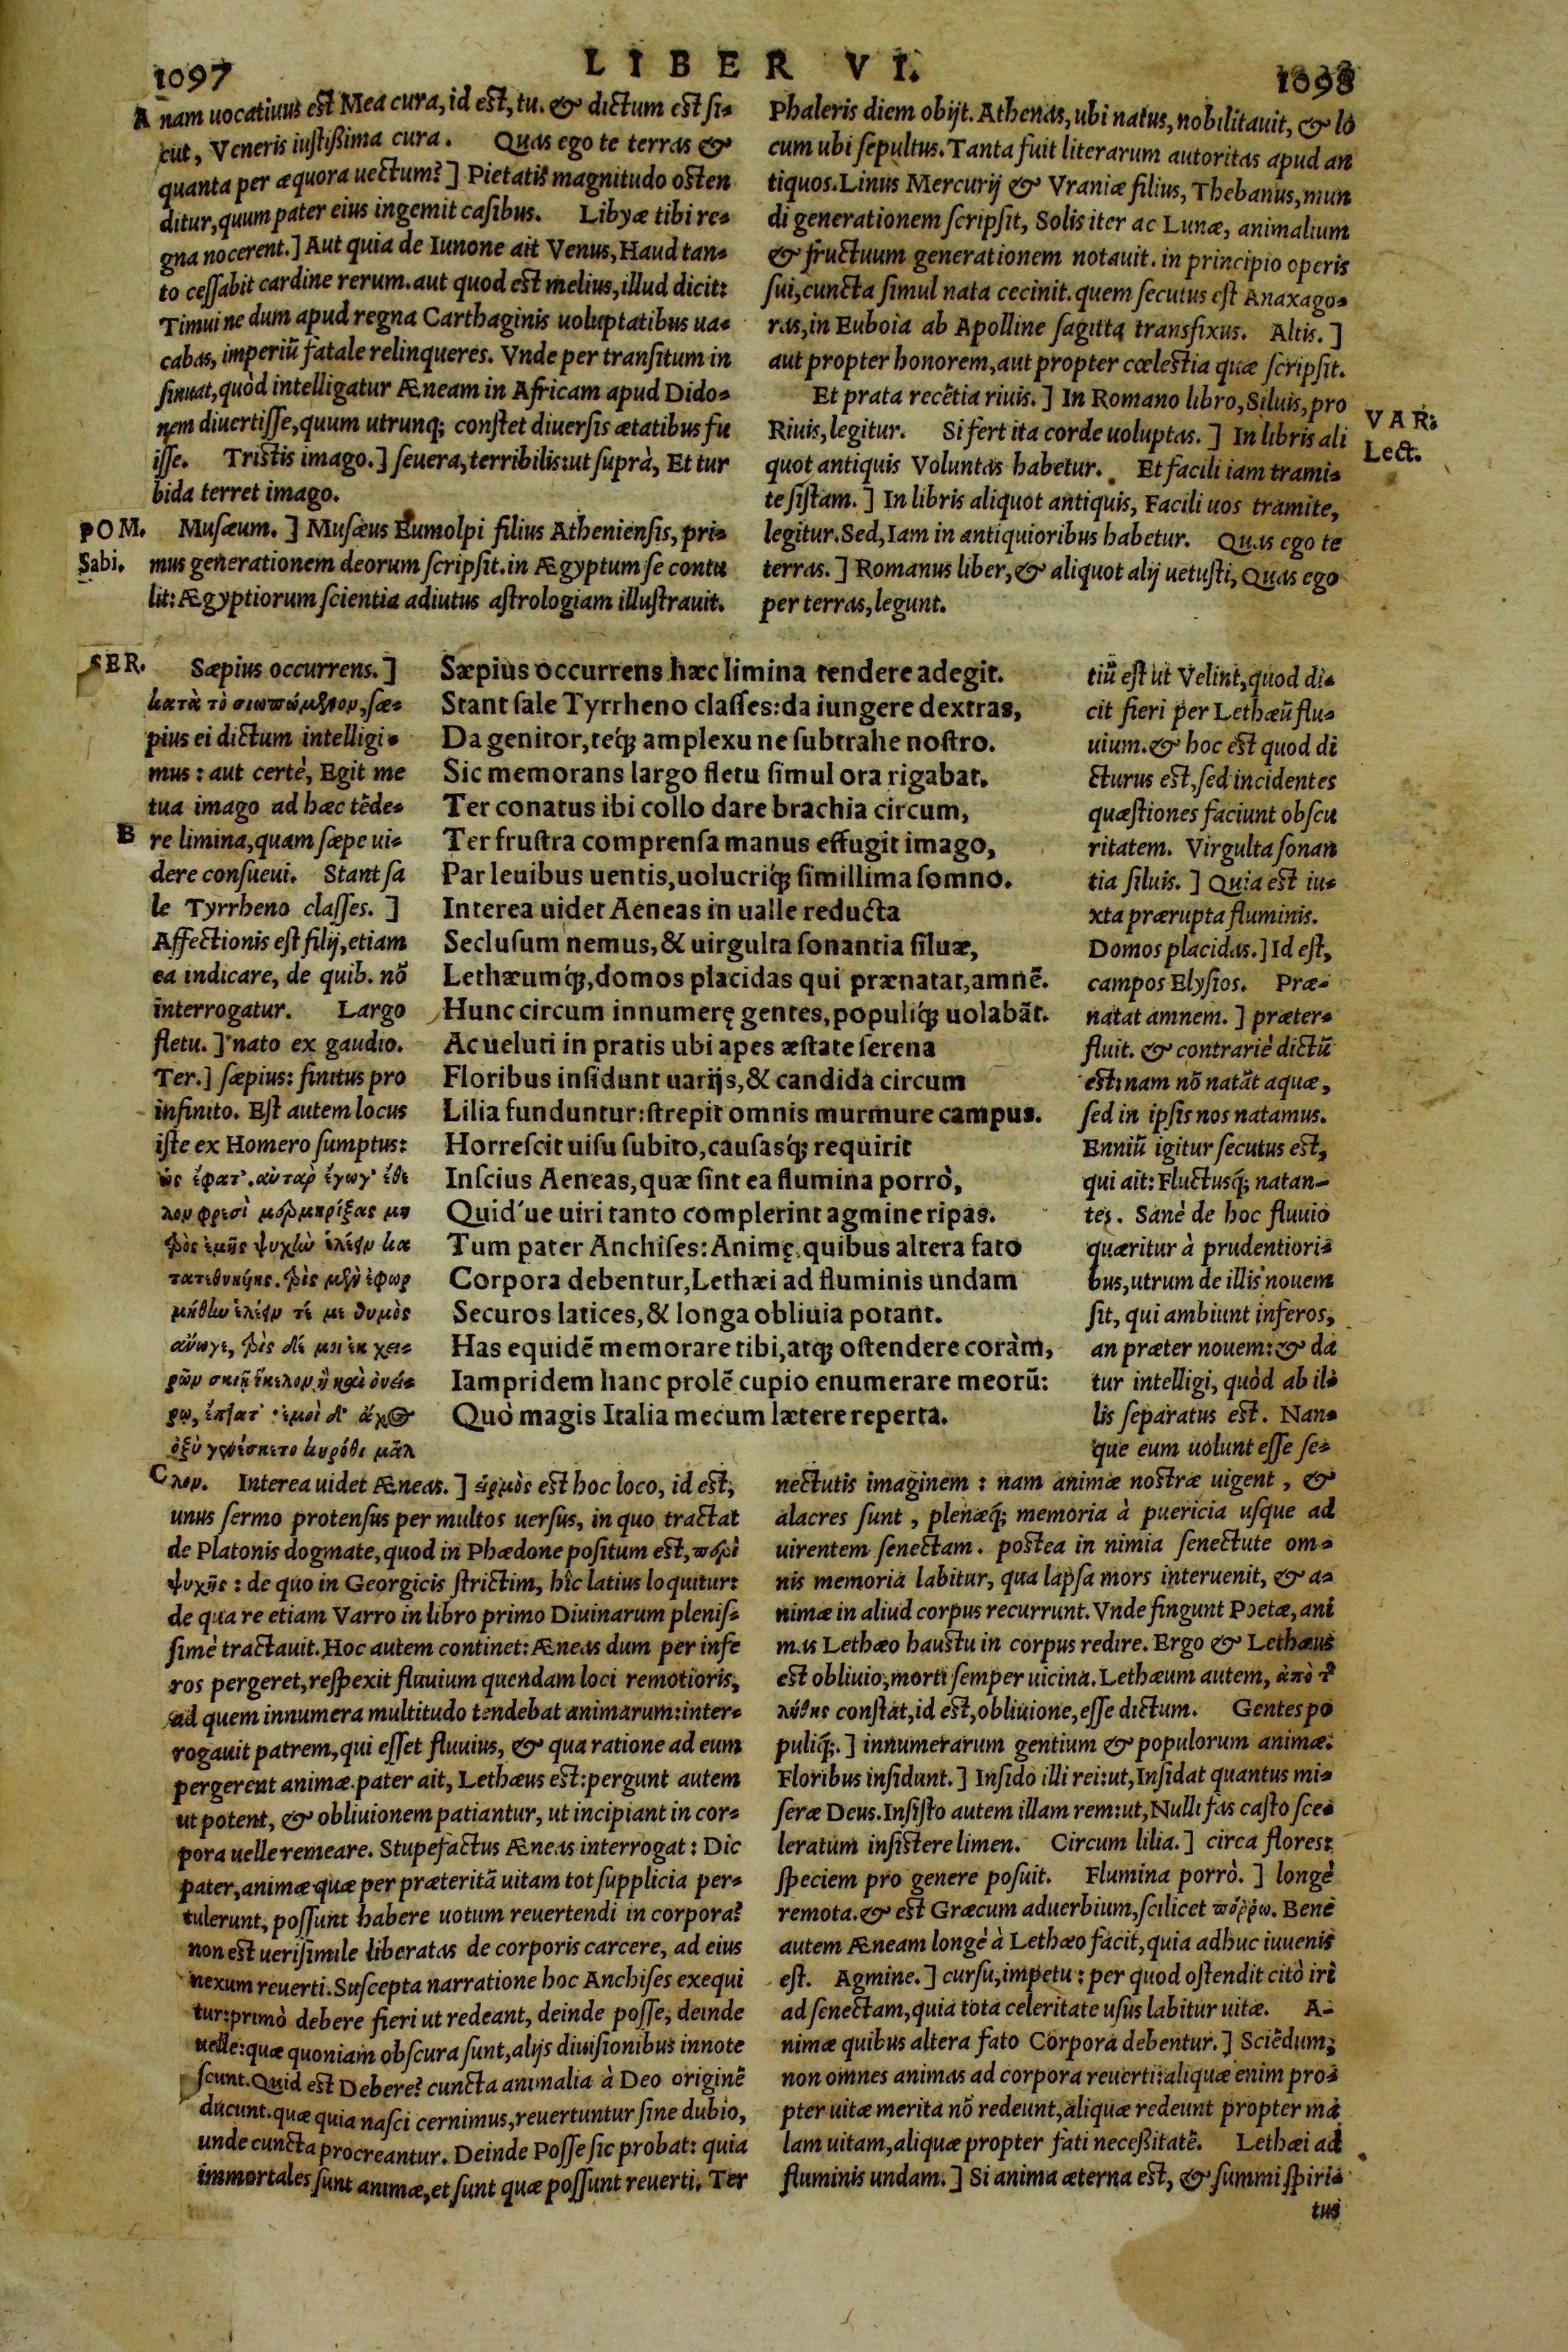 1097
LIBER VI.
1098
A nam uocatiuus est Mea cura, id est, tu. & dictum est si-
cut, Veneris iustißima cura. Quas ego te terras &
quanta per æquora uectum?] Pietatis magnitudo osten
ditur, quum pater eius ingemit casibus. Libyæ tibi re-
gna nocerent.] Aut quia de Iunone ait Venus, Haud tan-
to cessabit cardine rerum. aut quod est melius, illud dicit:
Timui ne dum apud regna Carthaginis uoluptatibus ua-
cabas, imperiũ fatale relinqueres. Vnde per transitum in
sinuat, quòd intelligatur Æneam in Africam apud Dido-
nem diuertisse, quum utrunq; constet diuersis ætatibus fu
isse. Tristis imago.] seuera, terribilis: ut suprà, Et tur
bida terret imago.
POM. Sabi.
Musæum.] Musæus Eumolpi filius Atheniensis, pri-
mus generationem deorum scripsit. in Ægyptum se contu
lit: Ægyptiorum scientia adiutus astrologiam illustrauit.
Phaleris diem obijt. Athenas, ubi natus, nobilitauit, & lo
cum ubi sepultus. Tanta fuit literarum autoritas apud an
tiquos. Linus Mercurij & Vraniæ filius, Thebanus, mun
di generationem scripsit, Solis iter ac Lunæ, animalium
& fructuum generationem notauit. in principio operis
sui, cuncta simul nata cecinit. quem secutus est Anaxago-
ras, in Euboia ab Apolline sagitta transfixus. Altis.]
aut propter honorem, aut propter cœlestia quæ scripsit.
Et prata recẽtia riuis.] In Romano libro, Siluis, pro
VAR. Lect.
Riuis, legitur. Si fert ita corde uoluptas.] In libris ali
quot antiquis Voluntas habetur. Et facili iam trami-
te sistam.] In libris aliquot antiquis, Facili uos tramite,
legitur. Sed, Iam in antiquioribus habetur. Quas ego te
terras.] Romanus liber, & aliquot alij uetusti, Quas ego
per terras, legunt.
SER.
Sæpius occurrens.]
κατὰ τὸ σιωπώμενον, sæ-
pius ei dictum intelligi-
mus: aut certè, Egit me
tua imago ad hæc tẽde-
B re limina, quam sæpe ui-
dere consueui. Stant sa
le Tyrrheno classes.]
Affectionis est filij, etiam
ea indicare, de quib. nõ
interrogatur. Largo
fletu.] nato ex gaudio.
Ter.] sæpius: finitus pro
infinito. Est autem locus
iste ex Homero sumptus:
ὡς ἔφατ'. αὐτὰρ ἔγωγ' ἔθε
λον φρεσὶ μερμηρίξας μη
τρὸς ἐμῆς ψυχὴν ἑλέειν κα
τατεθνηκυίης. τρὶς μὲν ἐφωρ
μήθην ἑλέειν τέ με θυμὸς
ἀνώγει, τρὶς δέ μοι ἐκ χει-
ρῶν σκιῇ ἴκελον ἢ καὶ ὀνεί-
ρῳ, ἔπτατ' ἐμοὶ δ' ἄχος
ὀξὺ γενέσκετο κηρόθι μᾶλ
Sæpius occurrens hæc limina tendere adegit.
Stant sale Tyrrheno classes: da iungere dextras,
Da genitor, teq́; amplexu ne subtrahe nostro.
Sic memorans largo fletu simul ora rigabat.
Ter conatus ibi collo dare brachia circum,
Ter frustra comprensa manus effugit imago,
Par leuibus uentis, uolucriq́; simillima somno.
Interea uidet Aeneas in ualle reducta
Seclusum nemus, & uirgulta sonantia siluæ,
Lethæumq́;, domos placidas qui prænatat, amnẽ.
Hunc circum innumerę gentes, populiq́; uolabãt.
Ac ueluti in pratis ubi apes æstate serena
Floribus insidunt uarijs, & candida circum
Lilia funduntur: strepit omnis murmure campus.
Horrescit uisu subito, causasq́; requirit
Inscius Aeneas, quæ sint ea flumina porrò,
Quid'ue uiri tanto complerint agmine ripas.
Tum pater Anchises: Animę, quibus altera fato
Corpora debentur, Lethæi ad fluminis undam
Securos latices, & longa obliuia potant.
Has equidẽ memorare tibi, atq; ostendere coràm,
Iampridem hanc prolẽ cupio enumerare meorũ:
Quò magis Italia mecum lætere reperta.
tiũ est ut Velint, quod di-
cit fieri per Lethæũ flu-
uium. & hoc est quod di
cturus est, sed incidentes
quæstiones faciunt obscu
ritatem. Virgulta sonan
tia siluis.] Quia est iu-
xta prærupta fluminis.
Domos placidas.] Id est,
campos Elysios. Præ-
natat amnem.] præter-
fluit. & contrariè dictũ
est: nam nõ natãt aquæ,
sed in ipsis nos natamus.
Enniũ igitur secutus est,
qui ait: Fluctusq́; natan-
tes. Sanè de hoc fluuio
quæritur à prudentiori-
bus, utrum de illis nouem
sit, qui ambiunt inferos,
an præter nouem: & da
tur intelligi, quòd ab il-
lis separatus est. Nan-
que eum uolunt esse se-
C λον. Interea uidet Æneas.] εἱρμὸς est hoc loco, id est,
unus sermo protensus per multos uersus, in quo tractat
de Platonis dogmate, quod in Phædone positum est, περὶ
ψυχῆς: de quo in Georgicis strictim, hîc latius loquitur:
de qua re etiam Varro in libro primo Diuinarum plenis-
simè tractauit. Hoc autem continet: Æneas dum per infe
ros pergeret, respexit fluuium quendam loci remotioris,
ad quem innumera multitudo tendebat animarum: inter-
rogauit patrem, qui esset fluuius, & qua ratione ad eum
pergerent animæ. pater ait, Lethæus est: pergunt autem
ut potent, & obliuionem patiantur, ut incipiant in cor-
pora uelle remeare. Stupefactus Æneas interrogat: Dic
pater, animæ quæ per præteritã uitam tot supplicia per-
tulerunt, possunt habere uotum reuertendi in corpora?
non est uerisimile liberatas de corporis carcere, ad eius
nexum reuerti. Suscepta narratione hoc Anchises exequi
tur: primò debere fieri ut redeant, deinde posse, deinde
uelle: quæ quoniam obscura sunt, alijs diuisionibus innote
scunt. Quid est Debere? cuncta animalia à Deo originẽ
ducunt. quæ quia nasci cernimus, reuertuntur sine dubio,
unde cuncta procreantur. Deinde Posse sic probat: quia
immortales sunt animæ, et sunt quæ possunt reuerti. Ter
nectutis imaginem: nam animæ nostræ uigent, &
alacres sunt, plenæq́; memoria à puericia usque ad
uirentem senectam. postea in nimia senectute om-
nis memoria labitur, qua lapsa mors interuenit, & a-
nimæ in aliud corpus recurrunt. Vnde fingunt Poetæ, ani
mas Lethæo haustu in corpus redire. Ergo & Lethæus
est obliuio, morti semper uicina. Lethæum autem, ἀπὸ τῆς
λήθης constat, id est, obliuione, esse dictum. Gentes po
puliq́;.] innumerarum gentium & populorum animæ.
Floribus insidunt.] Insido illi rei: ut, Insidat quantus mi-
seræ Deus. Insisto autem illam rem: ut, Nulli fas casto sce-
leratum insistere limen. Circum lilia.] circa flores:
speciem pro genere posuit. Flumina porrò.] longè
remota. & est Græcum aduerbium, scilicet πόῤῥω. Benè
autem Æneam longè à Lethæo facit, quia adhuc iuuenis
est. Agmine.] cursu, impetu: per quod ostendit citò iri
ad senectam, quia tota celeritate usus labitur uitæ. A-
nimæ quibus altera fato Corpora debentur.] Sciẽdum,
non omnes animas ad corpora reuerti: aliquæ enim pro-
pter uitæ merita nõ redeunt, aliquæ redeunt propter ma
lam uitam, aliquæ propter fati neceßitatẽ. Lethæi ad
fluminis undam.] Si anima æterna est, & summi spiri-
tus